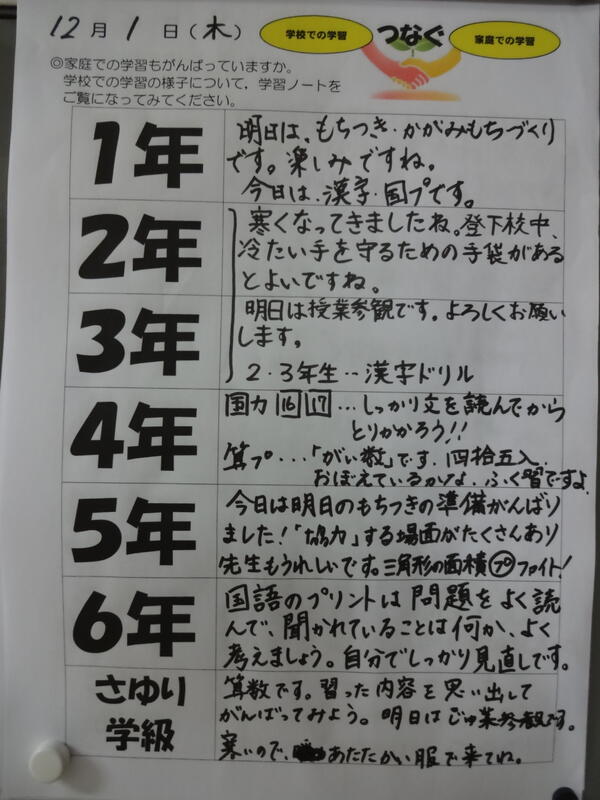 12月 1 日(木)
学校での学習
つなぐ
家庭での学習
◎家庭での学習もがんばっていますか。
学校での学習の様子について，学習ノートを
ご覧になってみてください。
1年
明日は、もちつき・かがみもちづくり
です。楽しみですね。
今日は、漢字・国プです。
2年
寒くなってきましたね。登下校中、
冷たい手を守るための手袋がある
とよいですね。
3年
明日は授業参観です。よろしくお願い
します。
2・3年生‥漢字ドリル
4年
国力 16 17 …しっかり文を読んでから
とりかかろう!!
算プ…「がい数」です。四拾五入、
おぼえているかな。ふく習ですよ。
5年
今日は明日のもちつきの準備がんばり
ました!「協力」する場面がたくさんあり
先生もうれしいです。三角形の面積プファイト!
6年
国語のプリントは問題をよく読
んで、聞かれていることは何か、よく
考えましょう。自分でしっかり見直しです。
さゆり
学級
算数です。習った内容を思い出して
がんばってみよう。明日はじゅ業参観です。
寒いので、あたたかい服で来てね。